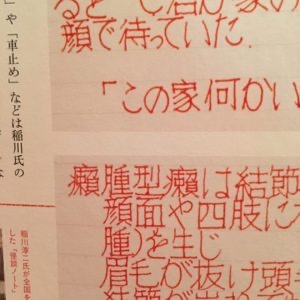 ると
顔で待っていた.
「この家何かい
や「車止め」などは稲川氏の
癩腫型癩は結節
顔面や四肢に
腫)を生じ
眉毛が抜け頭
稲川淳二氏が全国を
した「怪談ノート」